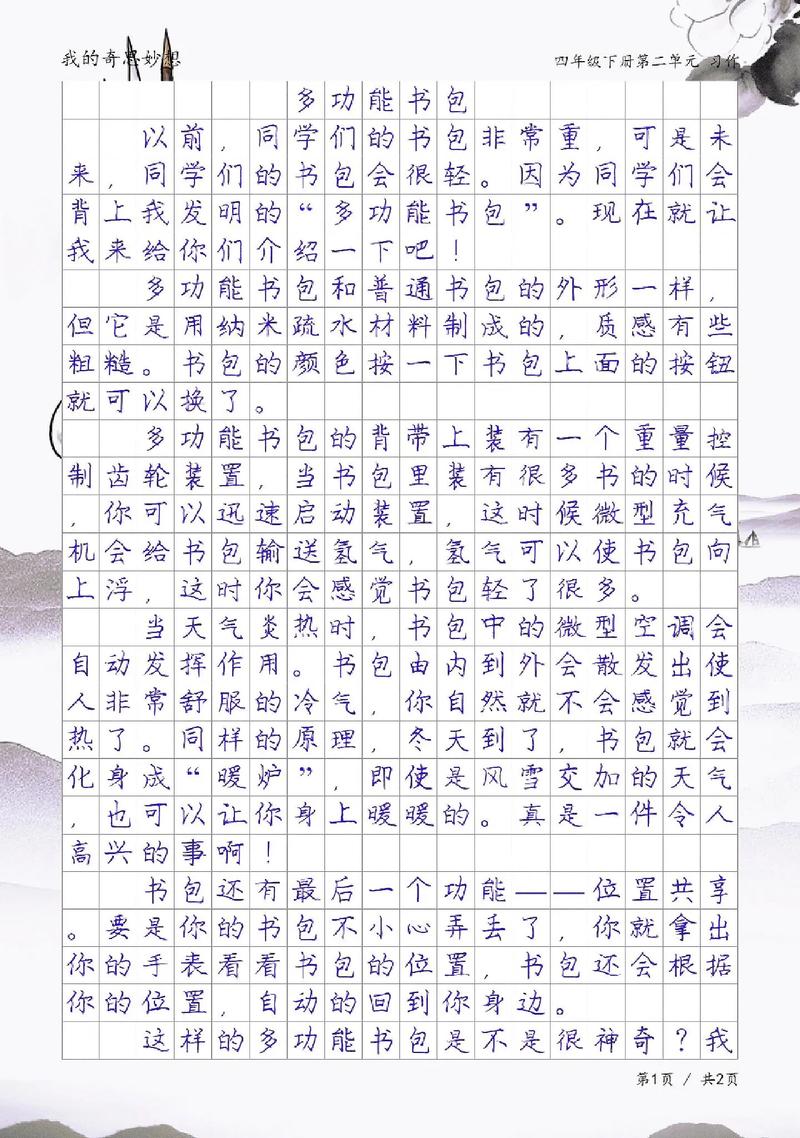 我的奇思妙想
四年级下册第二单元 习作
多功能书包
以前，同学们的书包非常重，可是未
来，同学们的书包会很轻。因为同学们会
背上我发明的“多功能书包”。现在就让
我来给你们介绍一下吧！
多功能书包和普通书包的外形一样，
但它是用纳米疏水材料制成的，质感有些
粗糙。书包的颜色按一下书包上面的按钮
就可以换了。
多功能书包的背带上装有一个重量控
制齿轮装置，当书包里装有很多书的时候
，你可以迅速启动装置，这时候微型充气
机会给书包输送氢气，氢气可以使书包向
上浮，这时你会感觉书包轻了很多。
当天气炎热时，书包中的微型空调会
自动发挥作用。书包由内到外会散发出使
人非常舒服的冷气，你自然就不会感觉到
热了。同样的原理，冬天到了，书包就会
化身成“暖炉”，即使是风雪交加的天气
，也可以让你身上暖暖的。真是一件令人
高兴的事啊！
书包还有最后一个功能——位置共享
。要是你的书包不小心弄丢了，你就拿出
你的手表看看书包的位置，书包还会根据
你的位置，自动的回到你身边。
这样的多功能书包是不是很神奇？我
第1页 / 共2页